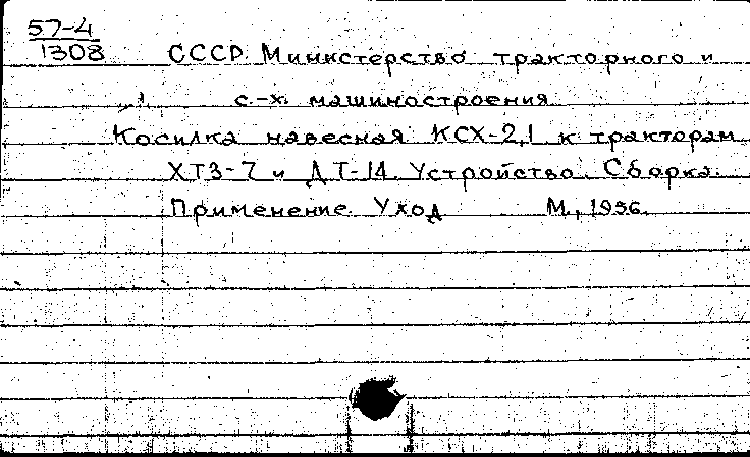 57-4
1308
СССР. Министерство тракторного и
с.-х. машиностроения.
Косилка навесная КСХ-2,1 к тракторам
ХТЗ-7 и ДТ-14. Устройство. Сборка.
Применение. Уход М., 1956.